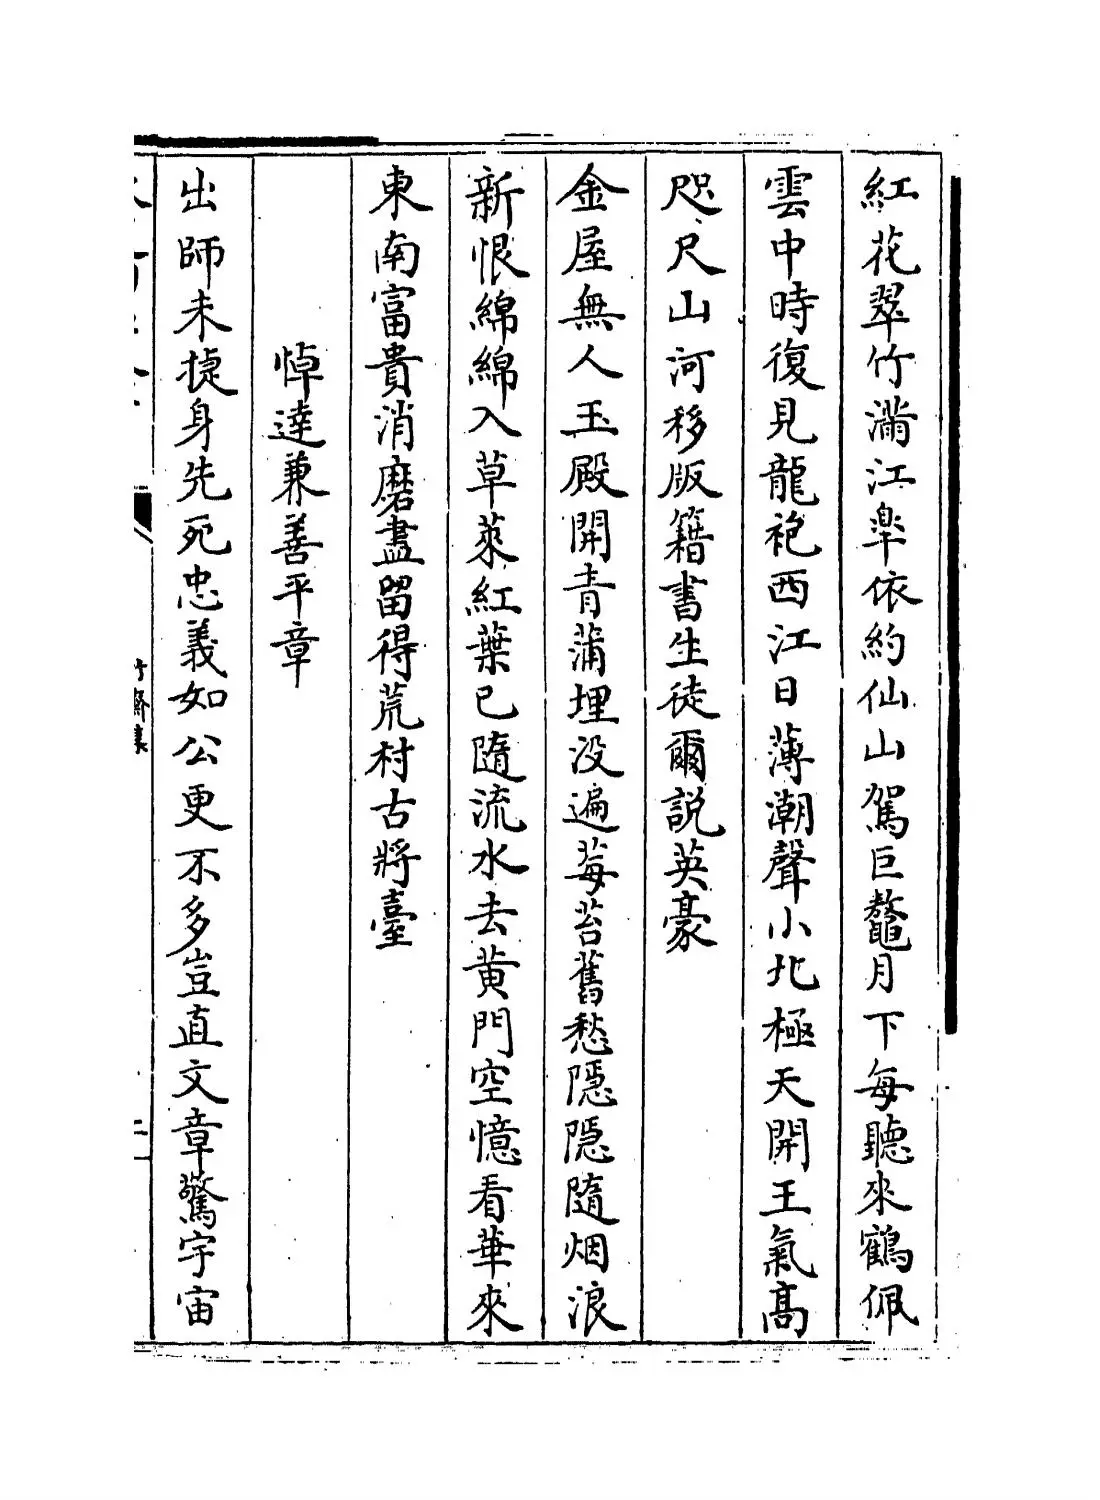 紅花翠竹滿江皋依約仙山駕巨鼇月下每聽來鶴佩
雲中時復見龍袍西江日薄潮聲小北極天開王氣髙
咫尺山河移版籍書生徒爾説英豪
金屋無人玉殿開青蒲埋没遍莓苔舊愁隠隠隨烟浪
新恨綿綿入草萊紅葉已隨流水去黄門空憶看華來
東南富貴消磨盡留得荒村古將臺
悼逹兼善平章
出師未捷身先死忠義如公更不多豈直文章驚宇宙
竹齋集